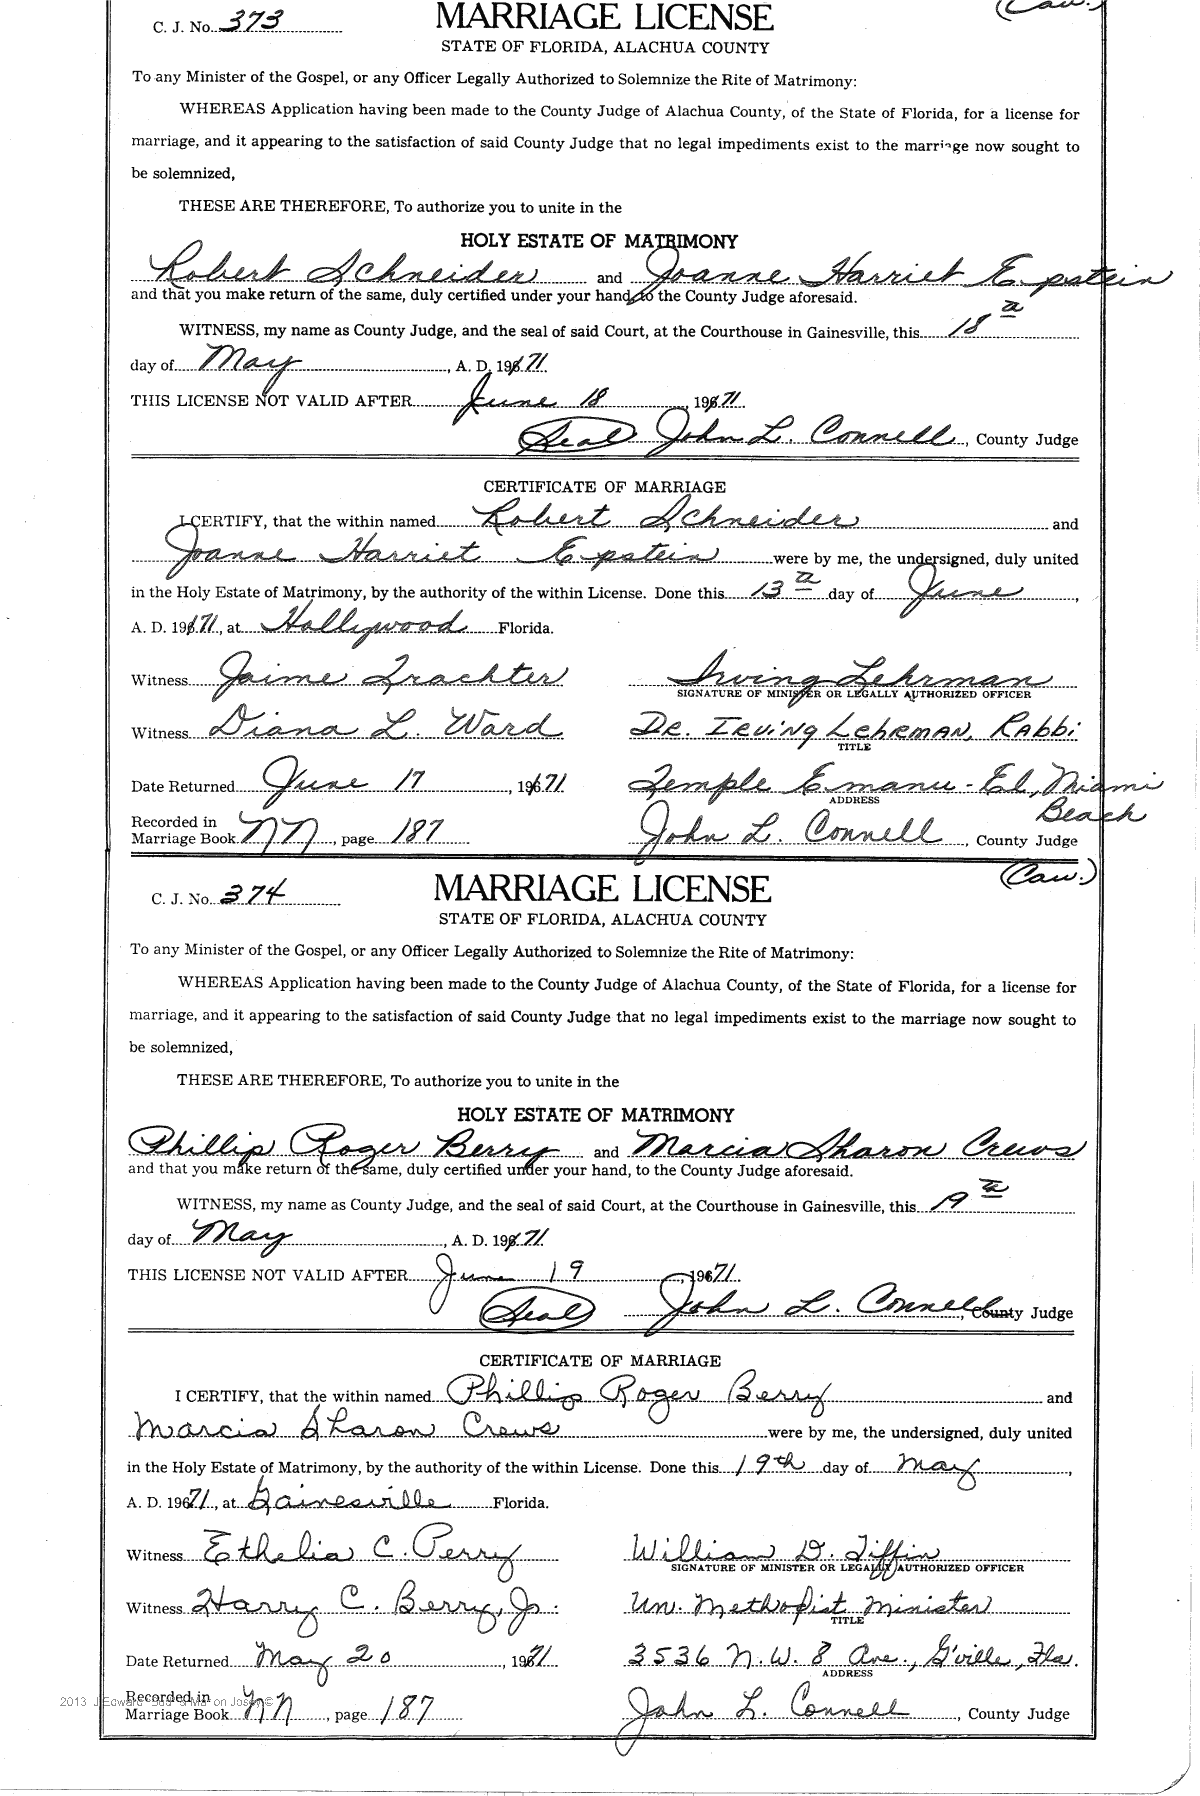 (Cau.)
C. J. No. 373
MARRIAGE LICENSE
STATE OF FLORIDA, ALACHUA COUNTY
To any Minister of the Gospel, or any Officer Legally Authorized to Solemnize the Rite of Matrimony:
WHEREAS Application having been made to the County Judge of Alachua County, of the State of Florida, for a license for
marriage, and it appearing to the satisfaction of said County Judge that no legal impediments exist to the marriage now sought to
be solemnized,
THESE ARE THEREFORE, To authorize you to unite in the
HOLY ESTATE OF MATRIMONY
Robert Schneider and Joanne Harriet Epstein
and that you make return of the same, duly certified under your hand, to the County Judge aforesaid.
WITNESS, my name as County Judge, and the seal of said Court, at the Courthouse in Gainesville, this 18th
day of May, A. D. 1971
THIS LICENSE NOT VALID AFTER June 18, 1971.
(Seal) John L. Connell, County Judge
CERTIFICATE OF MARRIAGE
I CERTIFY, that the within named Robert Schneider and
Joanne Harriet Epstein were by me, the undersigned, duly united
in the Holy Estate of Matrimony, by the authority of the within License. Done this 13th day of June,
A. D. 1971, at Hollywood Florida.
Witness Jaime Trachter Irving Lehrman
SIGNATURE OF MINISTER OR LEGALLY AUTHORIZED OFFICER
Witness Diana L. Ward Dr. Irving Lehrman, Rabbi
TITLE
Date Returned June 17, 1971. Temple Emanu-El, Miami Beach
ADDRESS
Recorded in
Marriage Book NN, page 187 John L. Connell, County Judge
(Cau.)
C. J. No. 374
MARRIAGE LICENSE
STATE OF FLORIDA, ALACHUA COUNTY
To any Minister of the Gospel, or any Officer Legally Authorized to Solemnize the Rite of Matrimony:
WHEREAS Application having been made to the County Judge of Alachua County, of the State of Florida, for a license for
marriage, and it appearing to the satisfaction of said County Judge that no legal impediments exist to the marriage now sought to
be solemnized,
THESE ARE THEREFORE, To authorize you to unite in the
HOLY ESTATE OF MATRIMONY
Phillip Roger Berry and Marcia Sharon Crews
and that you make return of the same, duly certified under your hand, to the County Judge aforesaid.
WITNESS, my name as County Judge, and the seal of said Court, at the Courthouse in Gainesville, this 19th
day of May, A. D. 1971
THIS LICENSE NOT VALID AFTER June 19, 1971.
(Seal) John L. Connell, County Judge
CERTIFICATE OF MARRIAGE
I CERTIFY, that the within named Phillip Roger Berry and
Marcia Sharon Crews were by me, the undersigned, duly united
in the Holy Estate of Matrimony, by the authority of the within License. Done this 19th day of May,
A. D. 1971, at Gainesville Florida.
Witness Ethelia C. Perry William D. Tiffin
SIGNATURE OF MINISTER OR LEGALLY AUTHORIZED OFFICER
Witness Harry C. Berry, Jr. Un. Methodist Minister
TITLE
Date Returned May 20, 1971 3536 N.W. 8 Ave., G'ville, Fla.
ADDRESS
Recorded in
Marriage Book NN, page 187 John L. Connell, County Judge